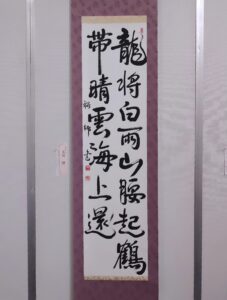 龍将白雨山腰起鶴
帯晴雲海上還